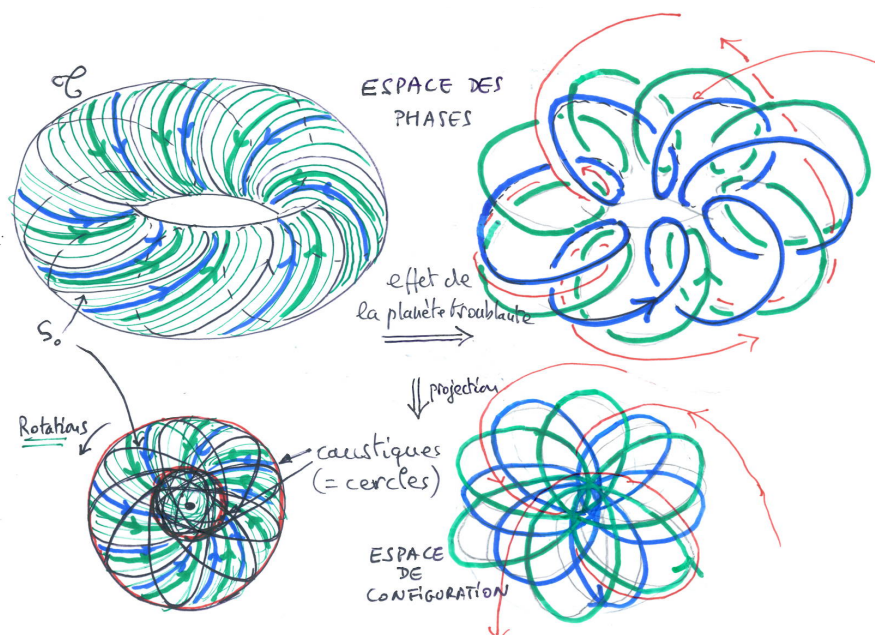 𝒯
ESPACE DES
PHASES
effet de
la planète troublante
S₀
projection
Rotations
caustiques
(= cercles)
ESPACE
DE
CONFIGURATION